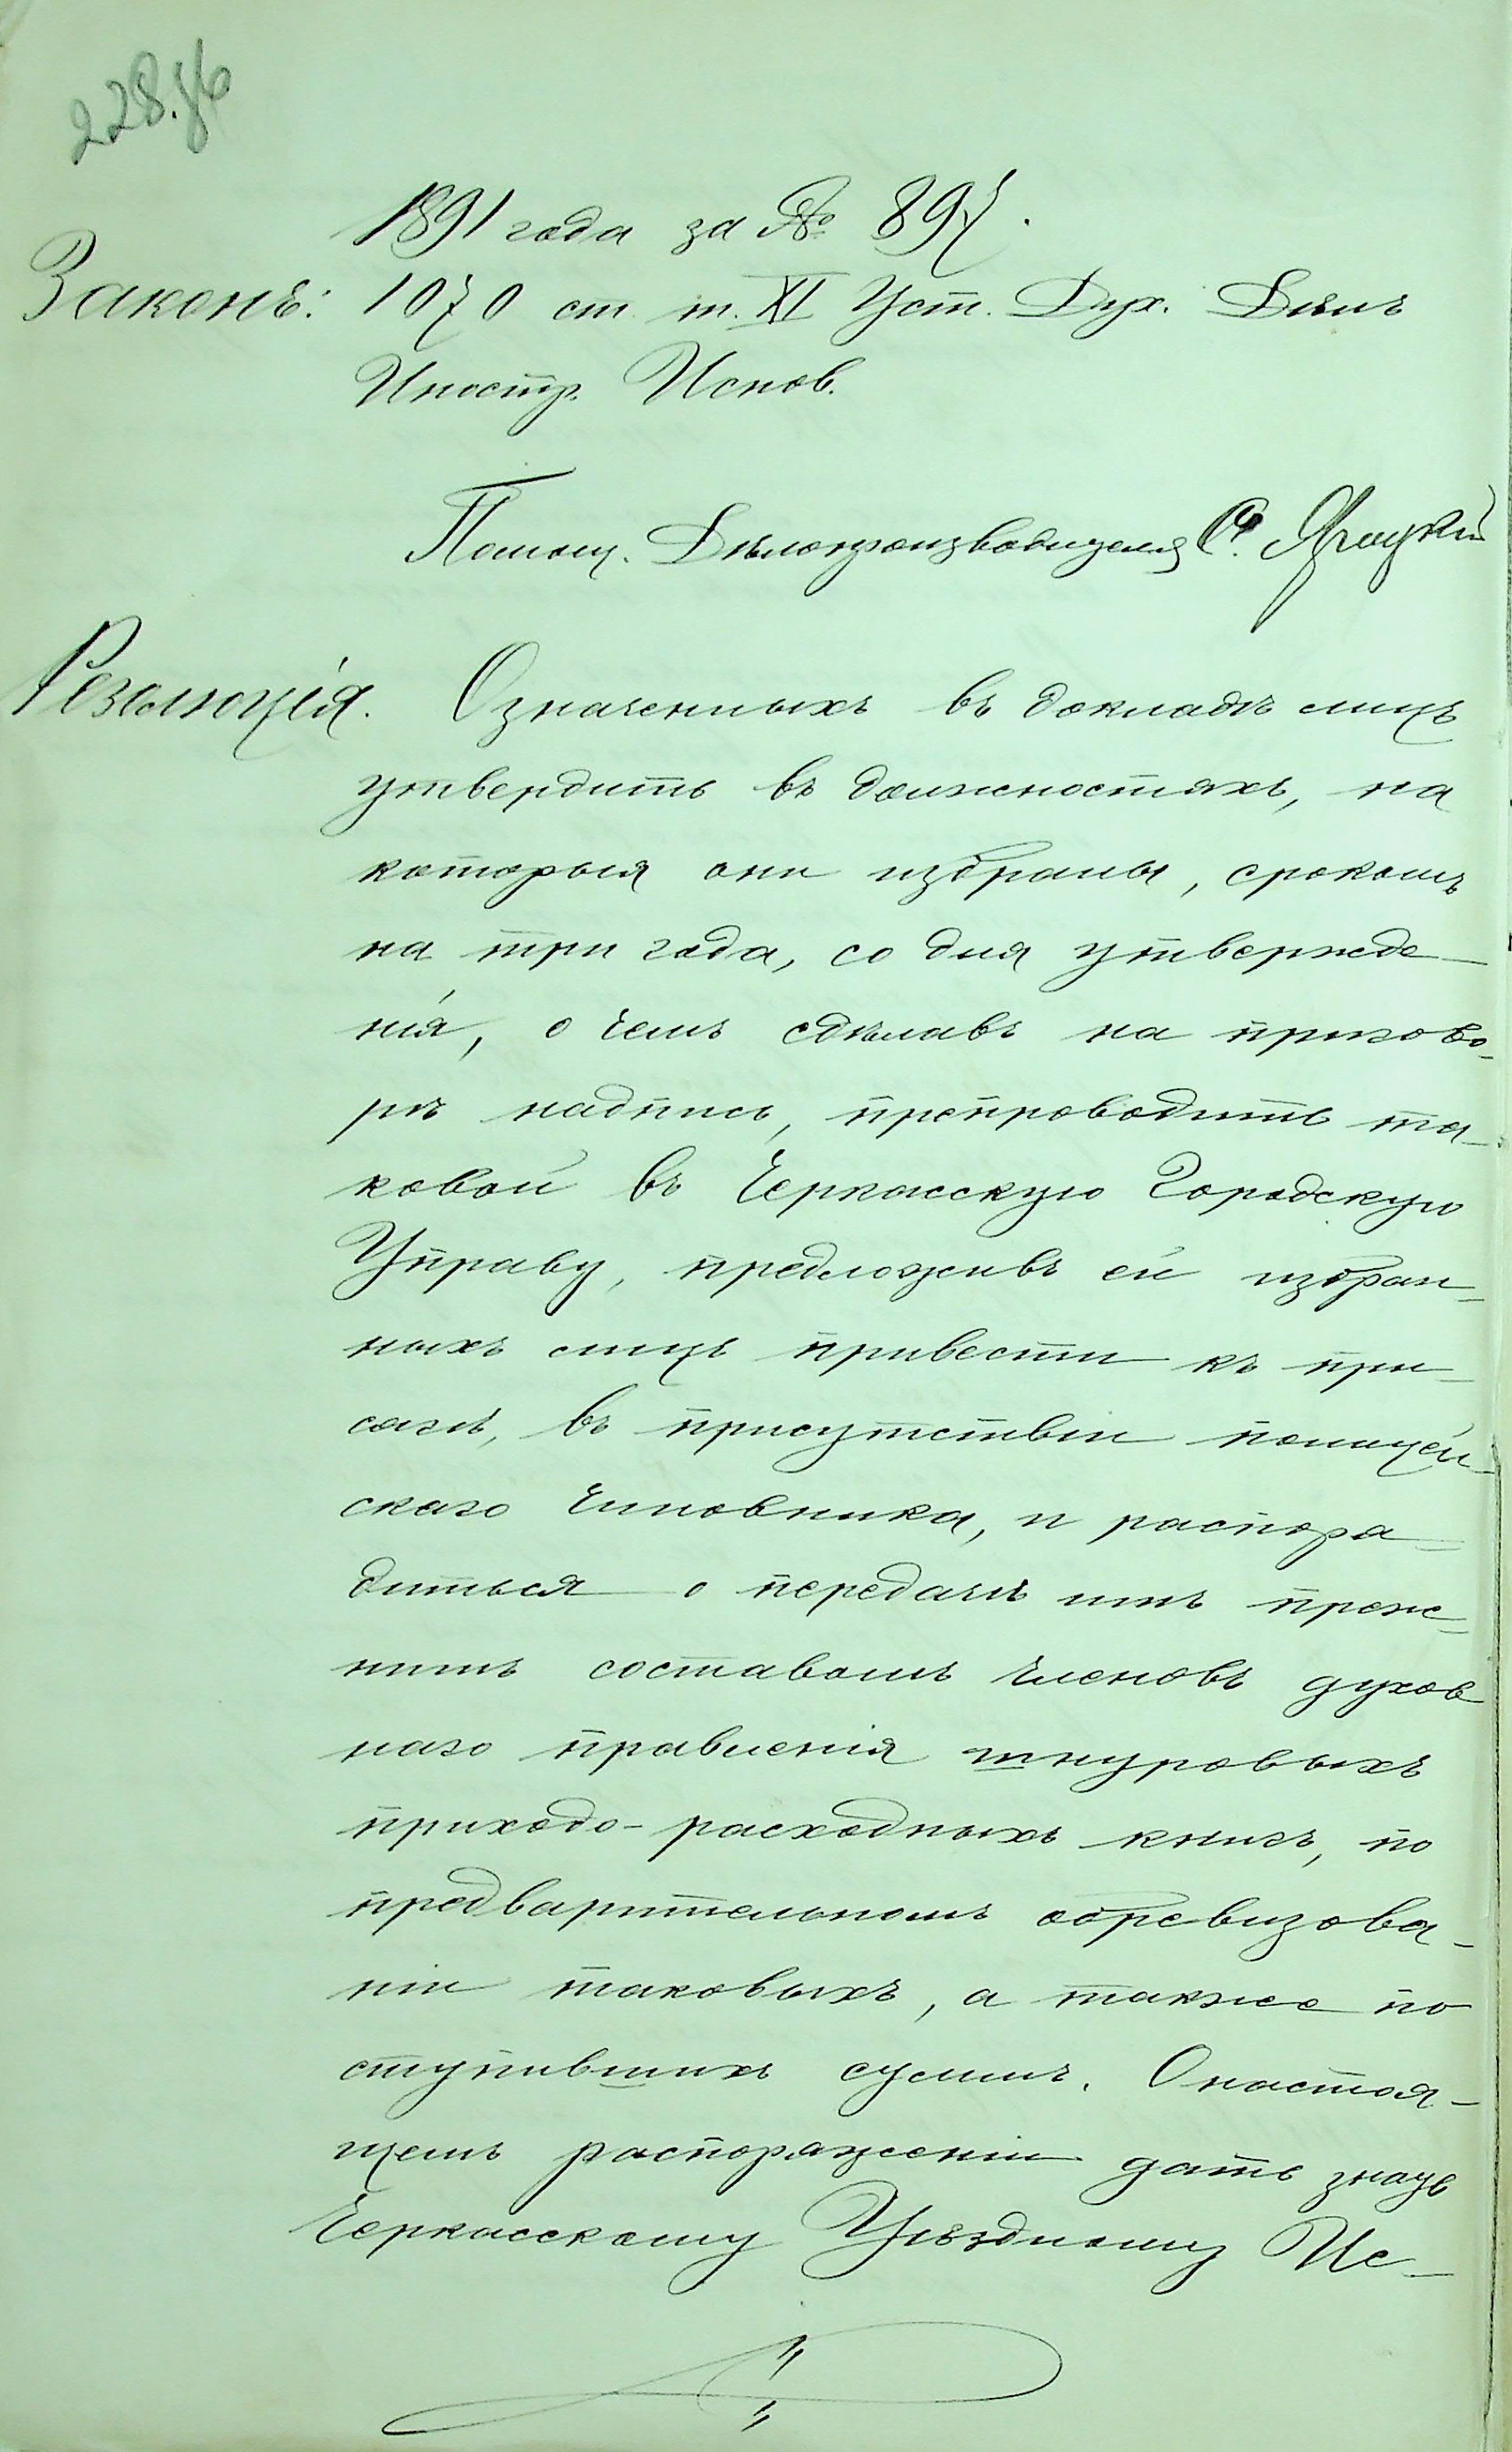 1891 года за № 897.
Законъ: 1070 ст. т. XI Уст. Дух. Дѣлъ
Иностр. Испов.
Помощ. Дѣлопроизводителя
Резолюція. Означенныхъ въ докладѣ лицъ
утвердить въ должностяхъ, на
которыя они избраны, срокомъ
на три года, со дня утвержде-
нія, о чемъ сдѣлавъ на пригово-
рѣ надпись, препроводить та-
ковой въ Черкасскую Городскую
Управу, предложивъ ей избран-
ныхъ лицъ привести къ при-
сягѣ, въ присутствіи полицей-
скаго чиновника, и распоря-
диться о передачѣ имъ преж-
нимъ составомъ членовъ духов
наго правленія шнуровыхъ
приходо-расходныхъ книгъ, по
предварительномъ обревизова-
ніи таковыхъ, а также по
ступившихъ суммъ. О настоя-
щемъ распоряженіи дать знать
Черкасскому Уѣздному Ис-